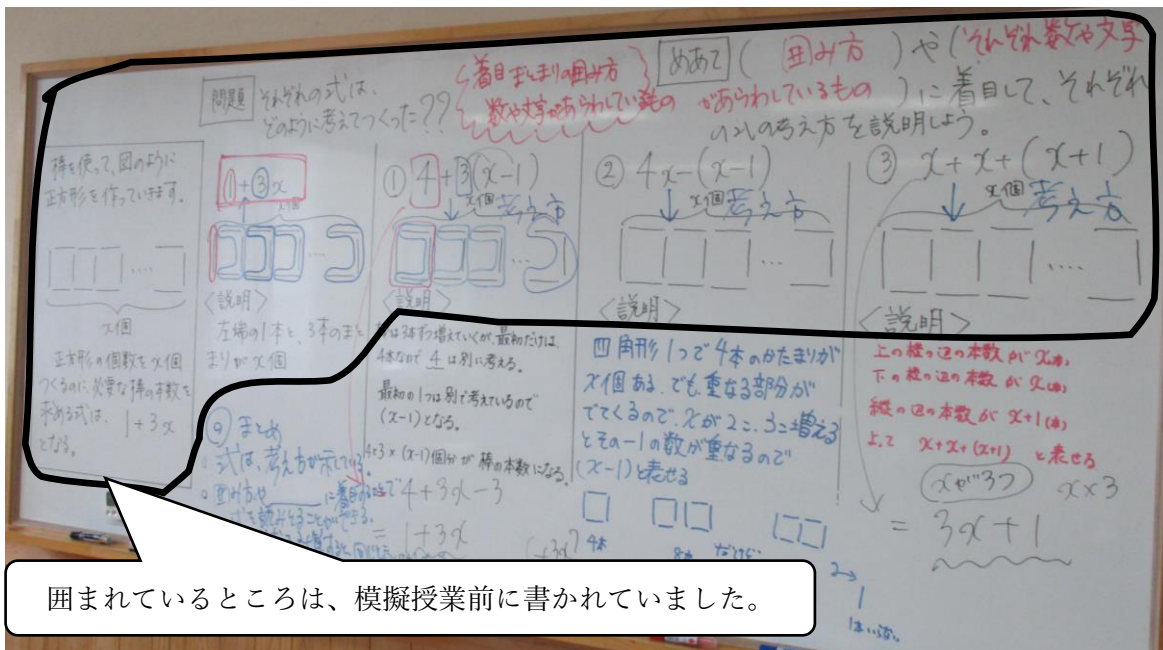 問題 それぞれの式は、
どのように考えてつくった??
着目 まとまりの囲み方
数や文字があらわしているもの
めあて ( 囲み方 ) や ( それぞれ数や文字
があらわしているもの ) に着目して、それぞれ
の式の考え方を説明しよう。
棒を使って、図のように
正方形を作っていきます。
x個
正方形の個数を x個
つくるのに必要な棒の本数を
求める式は、 1+3x
となる。
1+3x
x個
〈説明〉
左端の1本と、3本のまと
まりが x個
① 4+3(x-1)
x個 考え方
〈説明〉
は3本ずつ増えていくが、最初だけは、
4本なので 4 は別に考える。
最初の1つは別で考えているので
(x-1)となる。
4+3×(x-1)個分が 棒の本数になる。
4+3x-3
= 1+3x
② 4x-(x-1)
x個 考え方
〈説明〉
四角形1つで4本のかたまりが
x個ある。でも、重なる部分が
でてくるので、xが2こ、3こ増える
とその-1の数が重なるので
(x-1)と表せる
4本
8本 だけど
2→1
③ x+x+(x+1)
x個 考え方
〈説明〉
上の横の辺の本数が x(本)
下の横の辺の本数が x(本)
縦の辺の本数が x+1(本)
よって x+x+(x+1) と表せる
xが3つ x×3
= 3x+1
まとめ
式は、考え方が示している。
囲み方や に着目すると
式を読みとることができる。
囲まれているところは、模擬授業前に書かれていました。